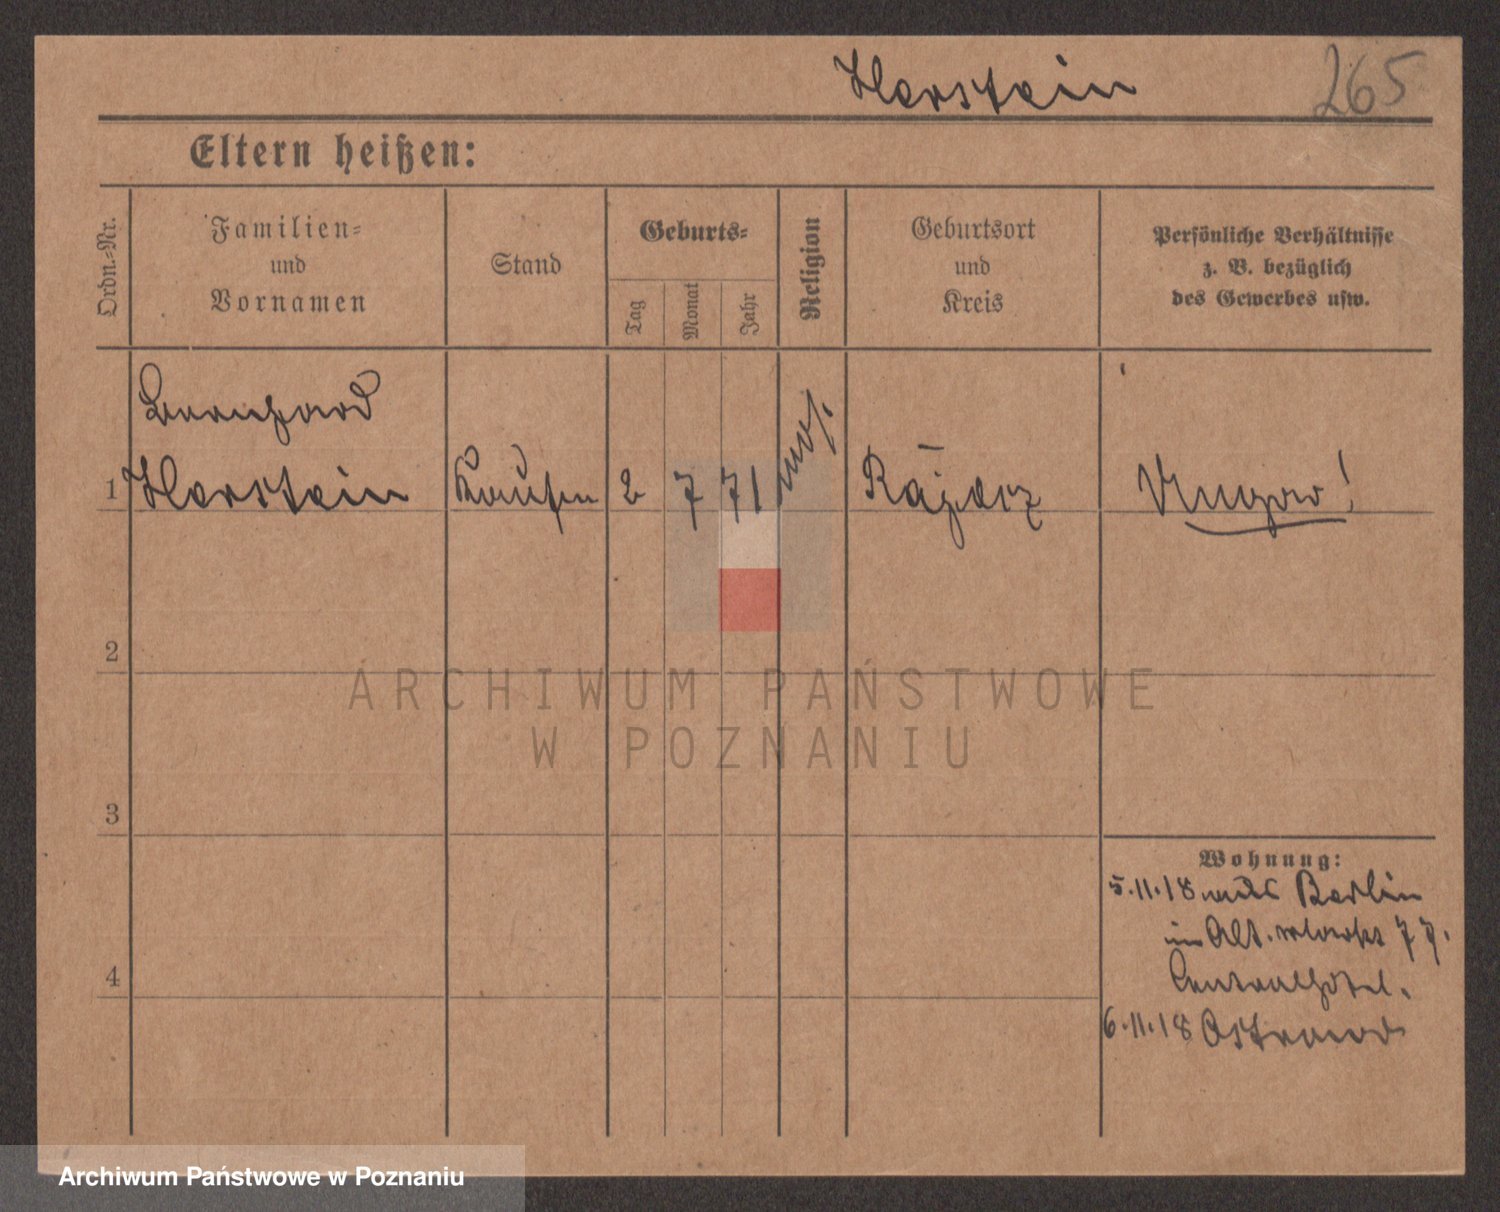 Herstein 265
Eltern heißen:
Ordn.-Nr.
Familien-
und
Vornamen
Stand
Geburts-
Tag
Monat
Jahr
Religion
Geburtsort
und
Kreis
Persönliche Verhältnisse
z. B. bezüglich
des Gewerbes usw.
Bernhard
1 Herstein Kaufm 2 7 71 mos. Ungar!
2
3
4
ARCHIWUM PAŃSTWOWE
W POZNANIU
Wohnung:
5.11.18 aus Berlin
in Alt. Markt 77.
Centralhotel.
6.11.18 Ostrowo
Archiwum Państwowe w Poznaniu